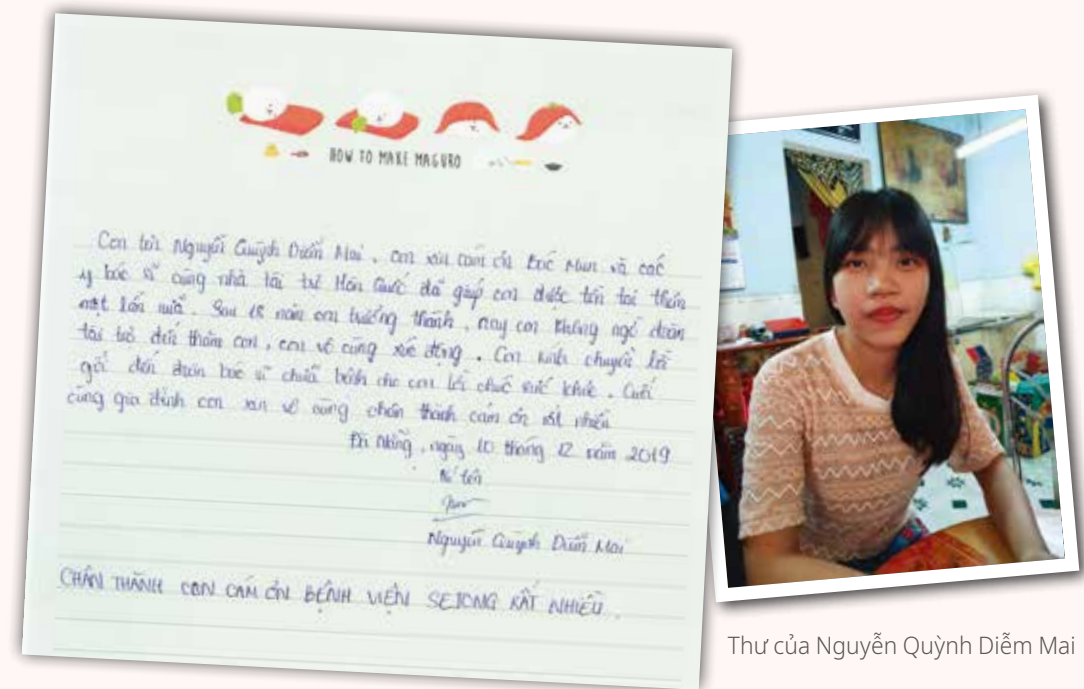 HOW TO MAKE MAGURO
Con tên Nguyễn Quỳnh Diễm Mai, con xin cảm ơn Bác Mun và các
y bác sĩ cùng nhà tài trợ Hàn Quốc đã giúp con được tồn tại thêm
một lần nữa. Sau 18 năm con trưởng thành, nay con không ngờ đoàn
tài trợ đến thăm con, con vô cùng xúc động. Con kính chuyển lời
gởi đến đoàn bác sĩ chữa bệnh cho con lời chúc sức khỏe. Cuối
cùng gia đình con xin vô cùng chân thành cảm ơn rất nhiều
Đà Nẵng, ngày 10 tháng 12 năm 2019
Kí tên
Nguyễn Quỳnh Diễm Mai
CHÂN THÀNH CON CẢM ƠN BỆNH VIỆN SEJONG RẤT NHIỀU.
Thư của Nguyễn Quỳnh Diễm Mai